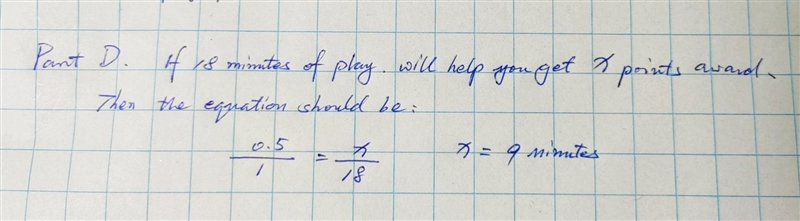 Part D. If 18 minutes of play. will help you get x points award.
Then the equation should be:
0.5/1 = x/18    x = 9 minutes